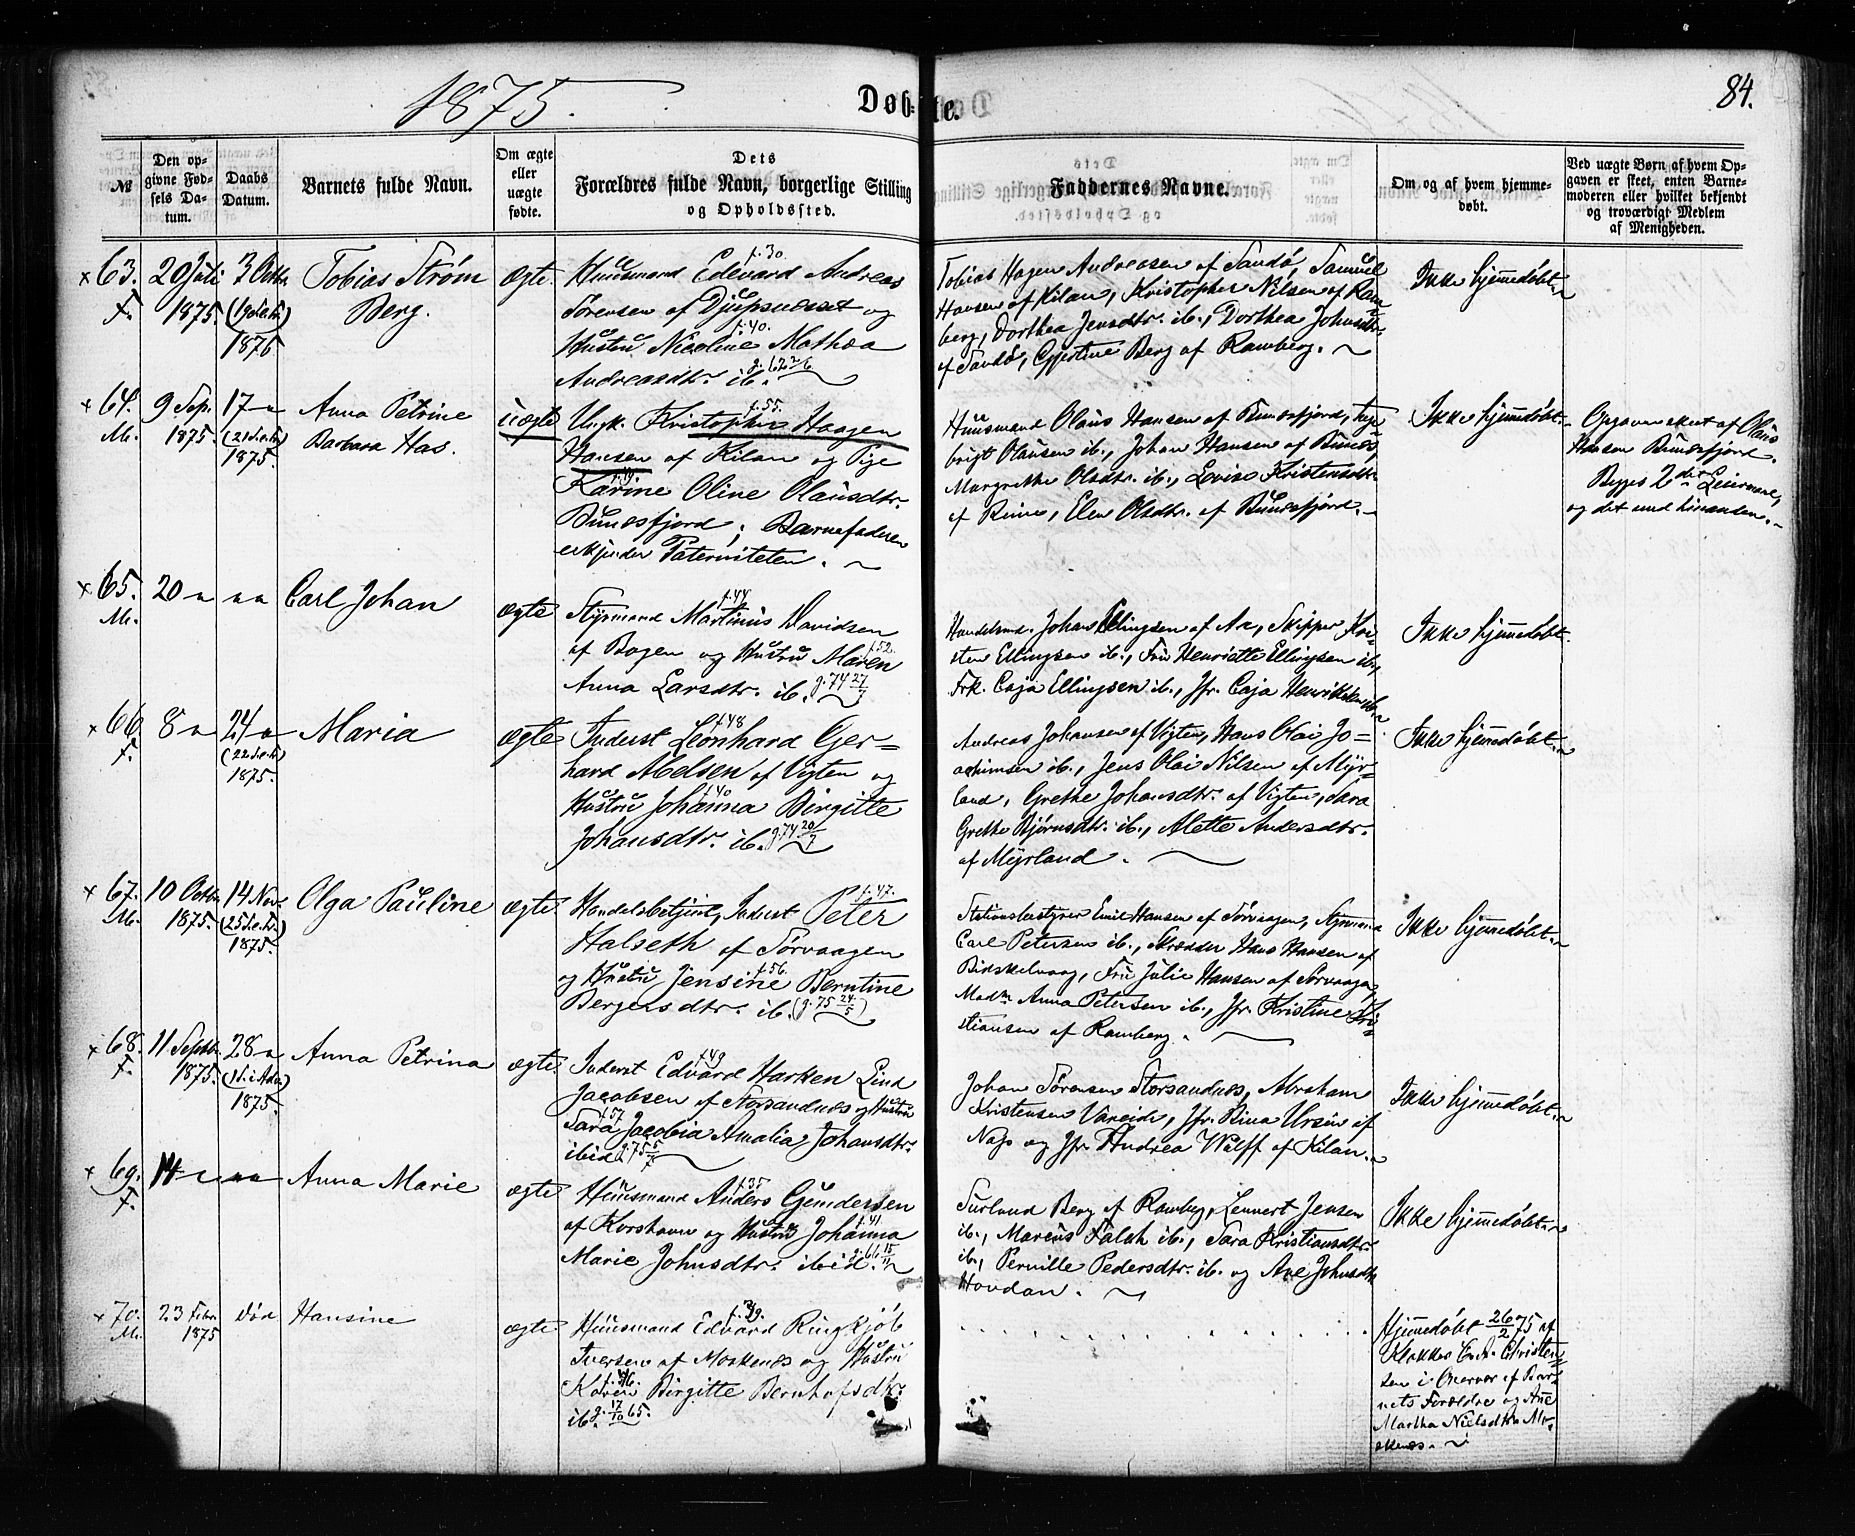 1875.
Døb-te.
84.
№
Den op-
givne Fød-
sels Da-
tum.
Daabs
Datum.
Barnets fulde Navn.
Om ægte
eller
uægte
fødte.
Dets
Forældres fulde Navn, borgerlige Stilling
og Opholdssted.
Faddernes Navne.
Om og af hvem hjemme-
døbt.
Ved uægte Børn af hvem Op-
gaven er skeet, enten Barne-
moderen eller hvilket bekjendt
og troværdigt Medlem
af Menigheden.
× 63.
F.
20 Juli
1875.
3 Octbr.
1875
Tobias Strøm
Berg.
ægte.
f. 30.
Huusmand Edevard Andreas
Sørensen af Djupsnæset og
f. 40.
Hustru Nicoline Mathea
Andreasdtr. ib. g. 62 2/6
Tobias Hagen Andreasen af Sandø, Samuel
Hansen af Kilan, Kristopher Nilsen af Ram-
berg, Dorthea Jensdtr. ib., Dorthea Johnsdtr.
af Sandø, Gjertine Berg af Ramberg.
Ikke hjemmedøbt.
× 64.
M.
9 Sep.
1875.
17 "
(21 S.e.Tr.)
1875.
Anna Petrine
Barbara Has.
uægte
f. 55.
Ungk. Kristopher Haagen
Hansen af Kilan og Pige
f. 49.
Karine Oline Olausdtr.
Bunesfjord; Barnefaderen
erkjender Paterniteten.
Huusmand Olaus Hansen af Bunesfjord, Inge-
brigt Olausen ib., Johan Hansen af Bunes,
Margrethe Olsdtr. ib., Lovise Kristensdtr.
af Reine, Elen Olsdtr. af Bunesfjord.
Ikke hjemmedøbt.
Opgaven skeet af Olaus
Hansen Bunesfjord.
Begges 2det Leiermaal,
og det med hinanden.
× 65.
M.
20 "
" "
Carl Johan
ægte
f. 44
Styrmand Martinus Davidsen
f. 52.
af Bogen og Hustru Maren
Anna Larsdtr. ib. g. 74 27/7
Handelsmd. Johan Ellingsen af Aa, Skipper Kri-
sten Ellingsen ib., Fru Henriette Ellingsen ib.,
Frk. Caja Ellingsen ib., Jfr. Caja Henriksen ib.
Ikke hjemmedøbt.
× 66
F.
8 "
24 "
(22 S.e.Tr.)
1875.
Maria
ægte
f. 48
Inderst Leonhard Ger-
hard Abelsen af Vigten og
f. 40
Hustru Johanna Birgitte
Johansdtr. ib. g. 74 20/7
Andreas Johansen af Vigten, Hans Olai Jo-
achimsen ib., Jens Olai Nilsen af Myr-
land, Grethe Johansdtr. af Vigten, Sara
Grethe Bjørnsdtr. ib., Alette Andersdtr.
af Myrland.
Ikke hjemmedøbt.
× 67.
M.
10 Octbr.
1875.
14 Nov.
(25 S.e.Tr.)
1875.
Olga Pauline
ægte
f. 47.
Handelsbetjent, Inderst Peter
Halseth af Sørvaagen
f. 56.
og Hustru Jensine Berntine
Bergersdtr. ib. (g. 75 24/5)
Stationsbestyrer Emil Hansen af Sørvaagen, Styrmand
Carl Petersen ib., Skrædder Hans Hansen af
Birkelvaag, Fru Julie Hansen af Sørvaagen,
Madm. Anna Petersen ib., Jfr. Kristine Kri-
stiansen af Ramberg.
Ikke hjemmedøbt.
× 68.
F.
11 Septbr.
1875.
28 "
(1 S. i Adv.)
1875.
Anna Petrina
ægte
f. 49
Inderst Edvard Harken Lind
Jacobsen af Storsandnæs og Hustru
f. 57
Sara Jacobia Amalia Johansdtr.
ibid. g. 75 5/7
Johan Sørensen Storsandnæs, Abraham
Kristensen Vareide, Jfr. Rina Ursin af
Naps og Jfr. Andrea Wulff af Kilan.
Ikke hjemmedøbt.
× 69.
F.
14 "
" "
Anna Marie
ægte
f. 35
Huusmand Anders Gundersen
f. 41
af Korshavn og Hustru Johanna
Marie Johnsdtr. ibid. g. 66 15/11
Berg af Ramberg, Lennert Jensen
ib., Marcus Falch ib., Sara Kristiansdtr.
ib., Pernille Pedersdtr. ib. og Ane Johnsdtr.
Hovdan.
Ikke hjemmedøbt.
× 70.
M.
23 Febr.
1875
Død
Hansine
ægte.
f. 39.
Huusmand Edvard Ringkjøb
Iversen af Moskenæs og Hustru
f. 46.
Karen Birgitte Bernhofsdtr.
ib. g. 17/10 65.
Hjemmedøbt 26/2 75 af
Klokker E. A. Christen-
sen i Overvær af Bar-
nets Forældre og Ane
Martha Nielsdtr. Mo-
skenæs.